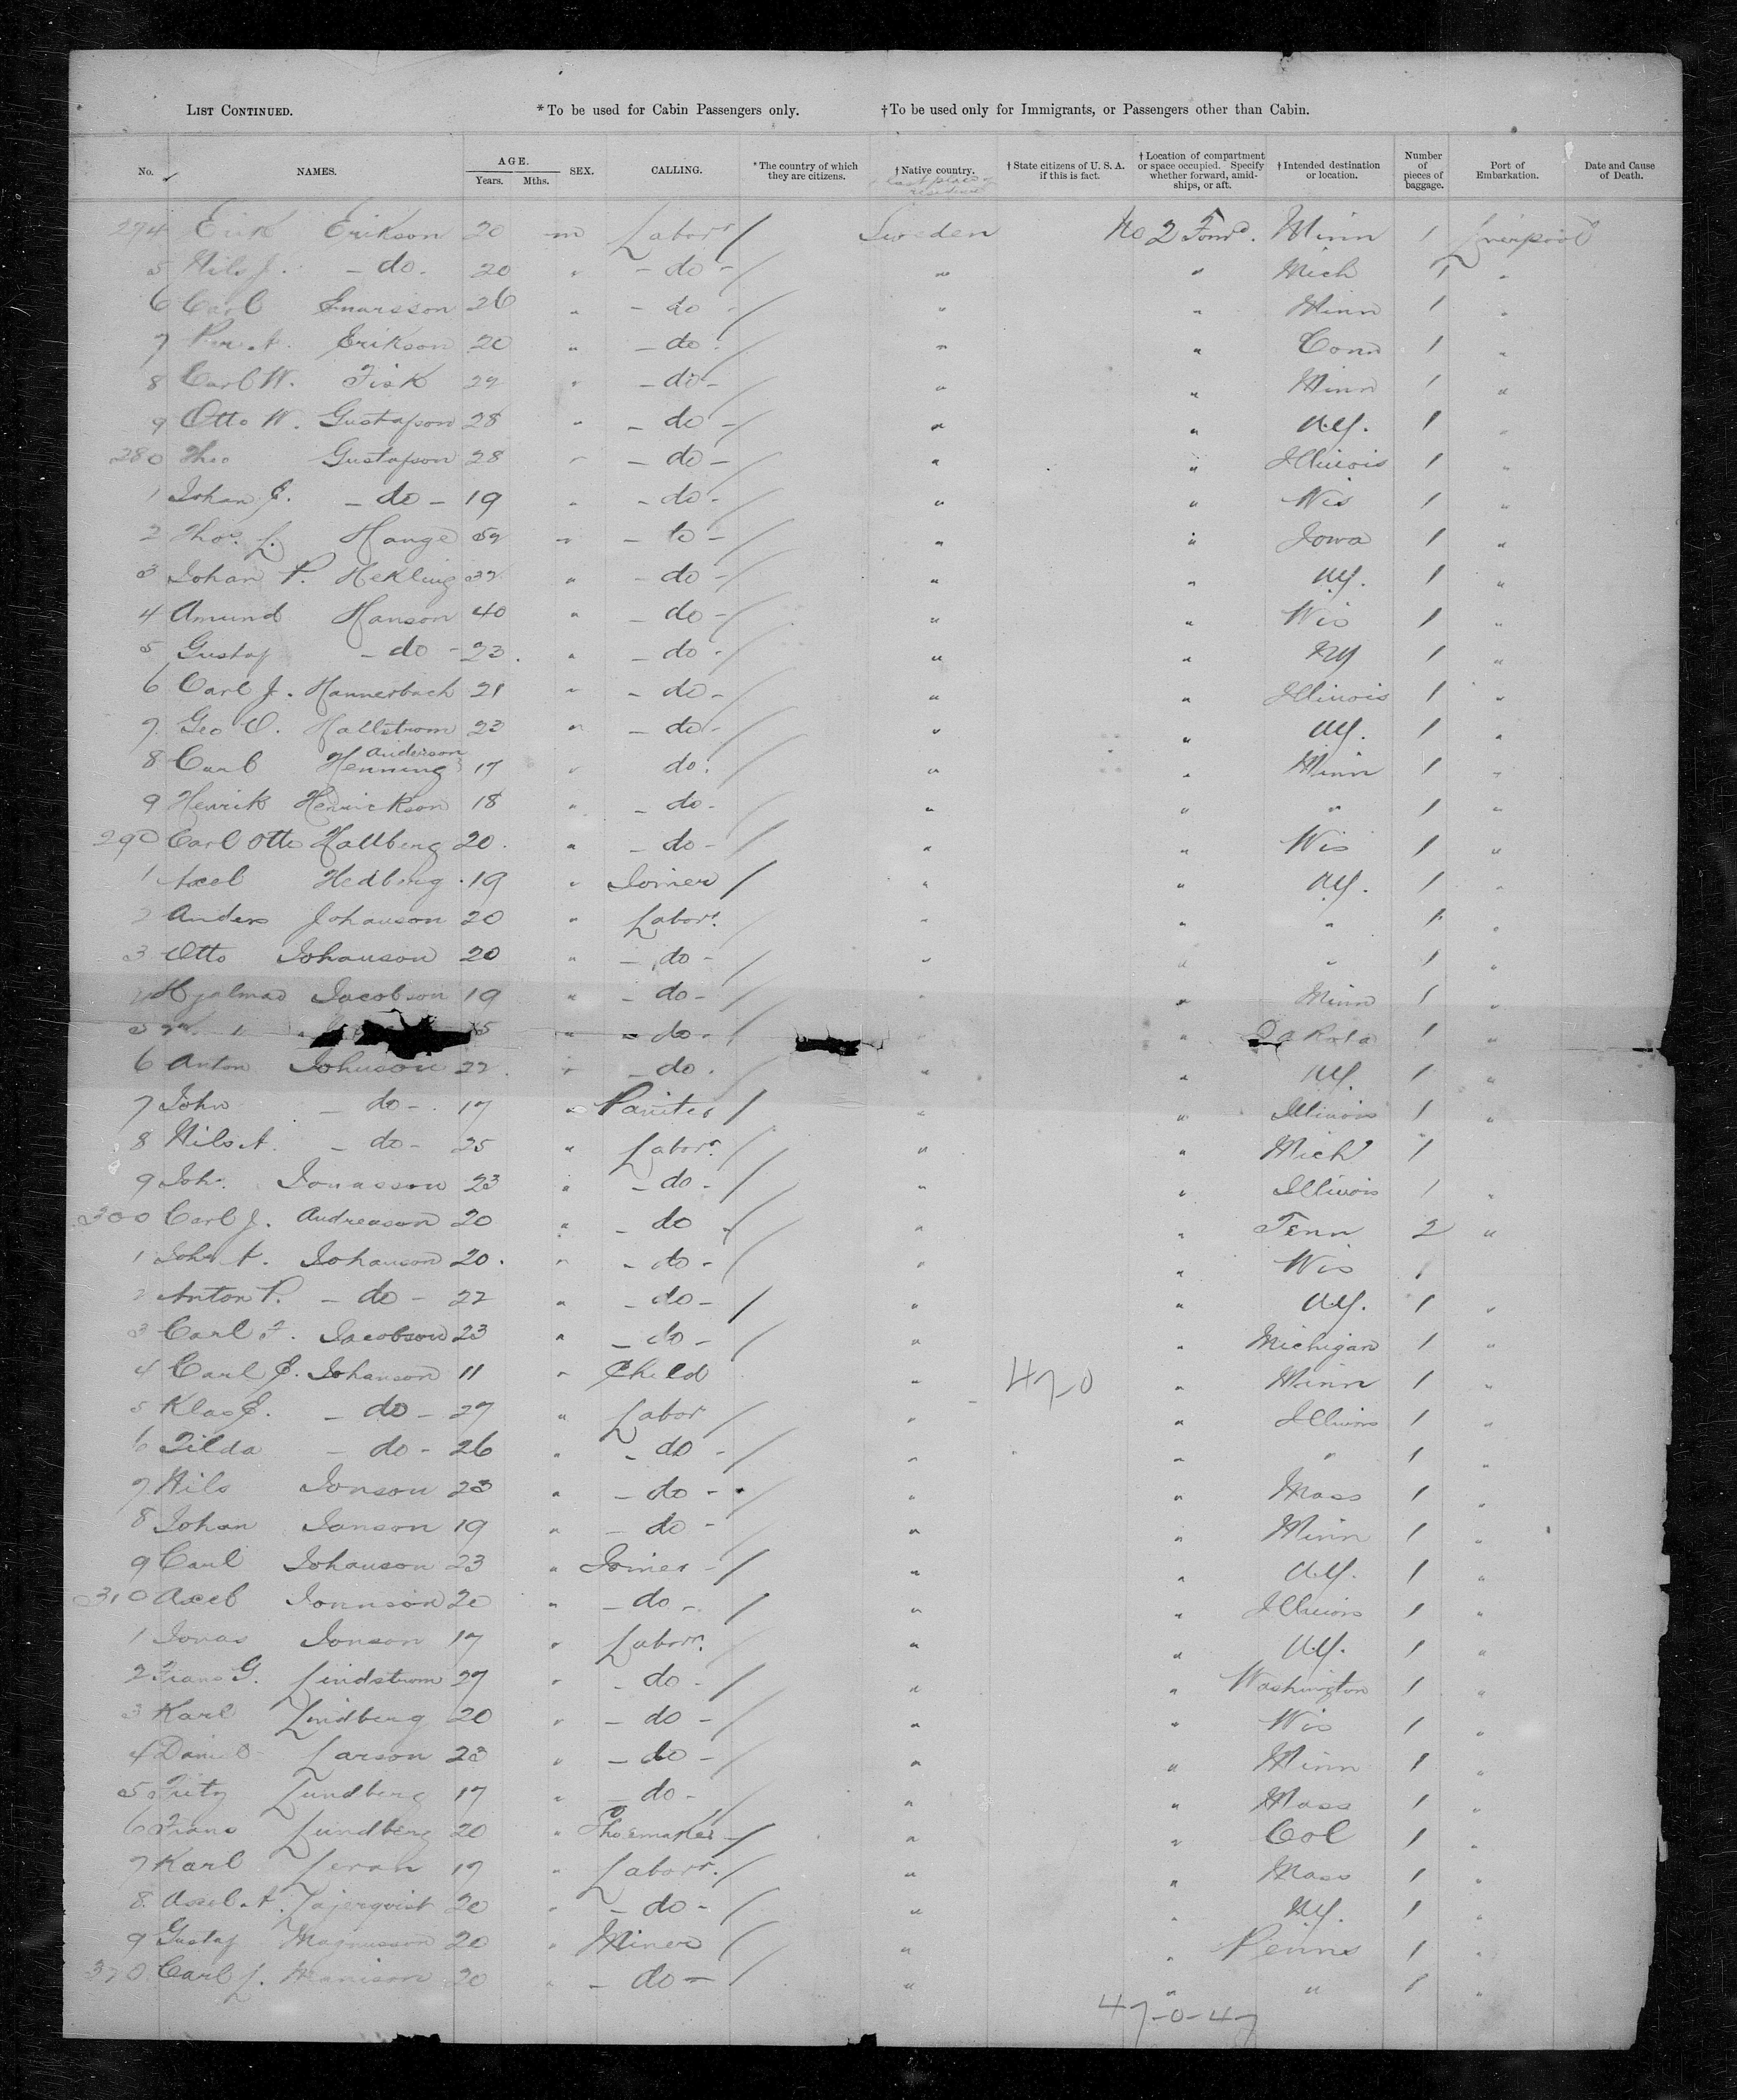 LIST CONTINUED. *To be used for Cabin Passengers only. †To be used only for Immigrants, or Passengers other than Cabin.
No. NAMES. AGE. Years. Mths. SEX. CALLING. *The country of which they are citizens. †Native country. last place of residence †State citizens of U. S. A. if this is fact. †Location of compartment or space occupied. Specify whether forward, amidships, or aft. †Intended destination or location. Number of pieces of baggage. Port of Embarkation. Date and Cause of Death.
274 Erik Erikson 20 m Labor / Sweden No 2 Forwd. Minn 1 Liverpool
5 Nils J. - do - 20 " - do - / " " Mich 1 "
6 Carl 26 " - do - / " " Minn 1 "
7 Erikson 20 " - do - / " " Conn 1 "
8 Carl W. Fisk 22 " - do - / " " Minn 1 "
9 Otto W. Gustafson 28 " - do - / " " N.Y. 1 "
280 Theo Gustafson 28 " - do - / " " Illinois 1 "
1 Johan E. - do - 19 " - do - / " " Wis 1 "
2 Thos. L. Hange 52 " - do - / " " Iowa 1 "
3 Johan P. Hekling 32 " - do - / " " N.Y. 1 "
4 Amund Hanson 40 " - do - / " " Wis 1 "
5 Gustaf - do - 23 " - do - / " " N.Y 1 "
6 Carl J. Hannerbach 21 " - do - / " " Illinois 1 "
7 Geo O. Hallstrom 23 " - do - / " " N.Y. 1 "
8 Carl Henning Anderson 17 " do. / " " Minn 1 "
9 Henrik Henrickson 18 " - do - / " " " 1 "
290 Carl Otto Hallberg 20 " - do - / " " Wis 1 "
1 Axel Hedberg 19 " Joiner / " " N.Y. 1 "
2 Anders Johanson 20 " Labor. / " " " 1 "
3 Otto Johanson 20 " - do - / " " " 1 "
4 Hjalmar Jacobson 19 " - do - / " " Minn 1 "
5 " - do - / " " Dakota 1 "
6 Anton Johnson 22 " - do - / " " N.Y. 1 "
7 John - do - 17 " Painter / " " Illinois 1 "
8 Nils A. - do - 25 " Labor. / " " Mich 1
9 Joh. Jonasson 23 " - do - / " " Illinois 1 "
300 Carl J. Andreason 20 " - do - / " " Tenn 2 "
1 Joh A. Johanson 20 " - do - / " " Wis 1
2 Anton P. - do - 22 " - do - / " " N.Y. 1 "
3 Carl F. Jacobson 23 " - do - / " " Michigan 1 "
4 Carl E. Johanson 11 " Child " 47-0 " Minn 1 "
5 Klas E. - do - 27 " Labor / " " Illinois 1 "
6 Tilda - do - 26 " - do - / " " " 1 "
7 Nils Jonson 23 " - do - / " " Mass 1 "
8 Johan Janson 19 " - do - / " " Minn 1 "
9 Carl Johanson 23 " Joiner / " " N.Y. 1 "
310 Axel Jonnson 20 " - do - / " " Illinois 1 "
1 Jonas Jonson 17 " Labor. / " " N.Y. 1 "
2 Frans G. Lindstrom 27 " - do - / " " Washington 1 "
3 Karl Lindberg 20 " - do - / " " Wis 1 "
4 Daniel Larson 23 " - do - / " " Minn 1 "
5 Fritz Lundberg 17 " - do - / " " Mass 1 "
6 Frans Lundberg 20 " Shoemaker / " " Col 1 "
7 Karl 17 " Labor. / " " Mass 1 "
8 Axel A. Lajerqvist 20 " - do - / " " N.Y. 1 "
9 Gustaf Magnusson 20 " Miner / " " Penns 1 "
320 Carl J. 20 " - do - / " " " 1 "
47-0-47